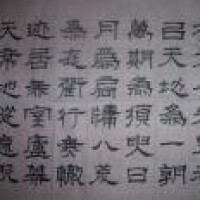 以天地為一朝
萬期為須臾日
月為扃牖八荒
為庭衢行無轍
迹居無室廬幕
天席地縱意所